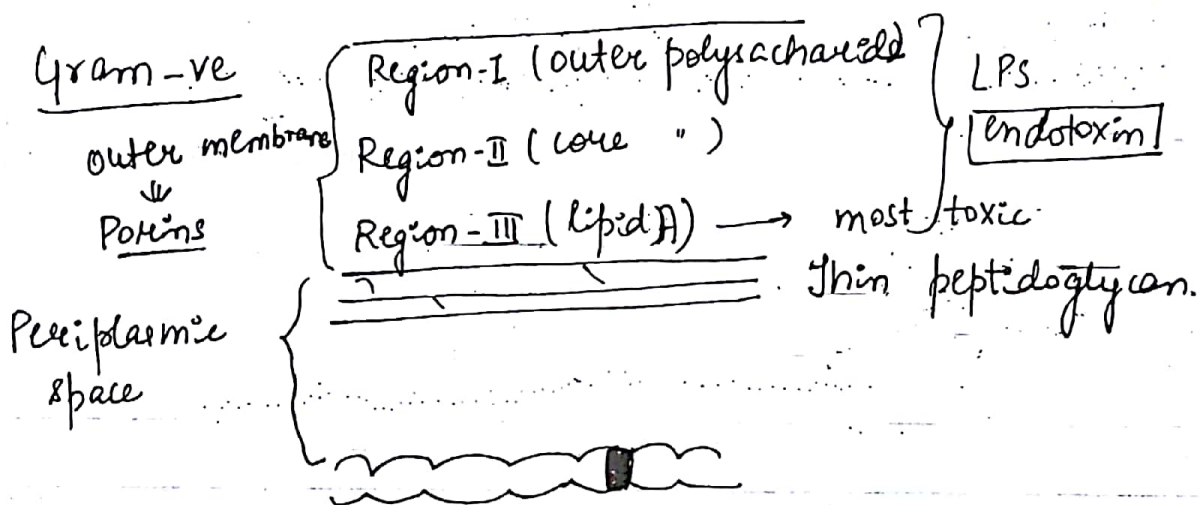 Gram -ve
outer membrane
⇓
Porins
Region-I (outer polysacharide)
Region-II (core " )
Region-III (lipid A) → most toxic.
LPS
endotoxin
Thin peptidoglycan.
Periplasmic
space